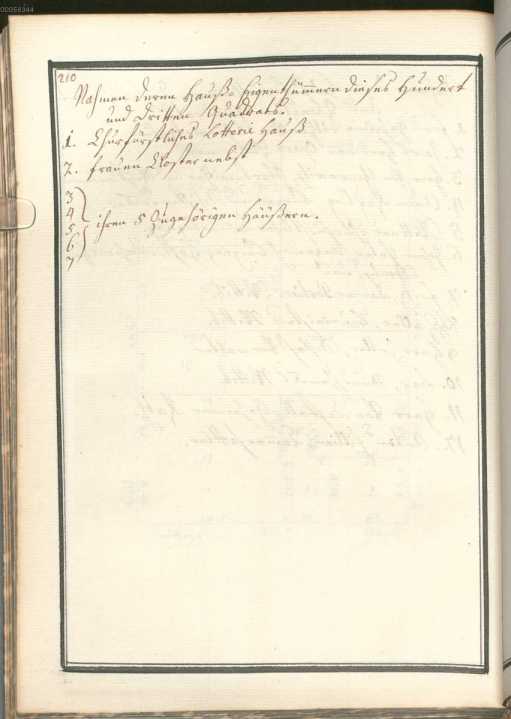 00054344
210
Nahmen deren Hauß-Eigenthümmern dieses Hundert
und Dritten Quadrats.
1. Churfürstliches Lotterie Hauß
2. Frauen Closter nebst
3
4
5 ihren 5 Zugehörigen Häußern.
6
7